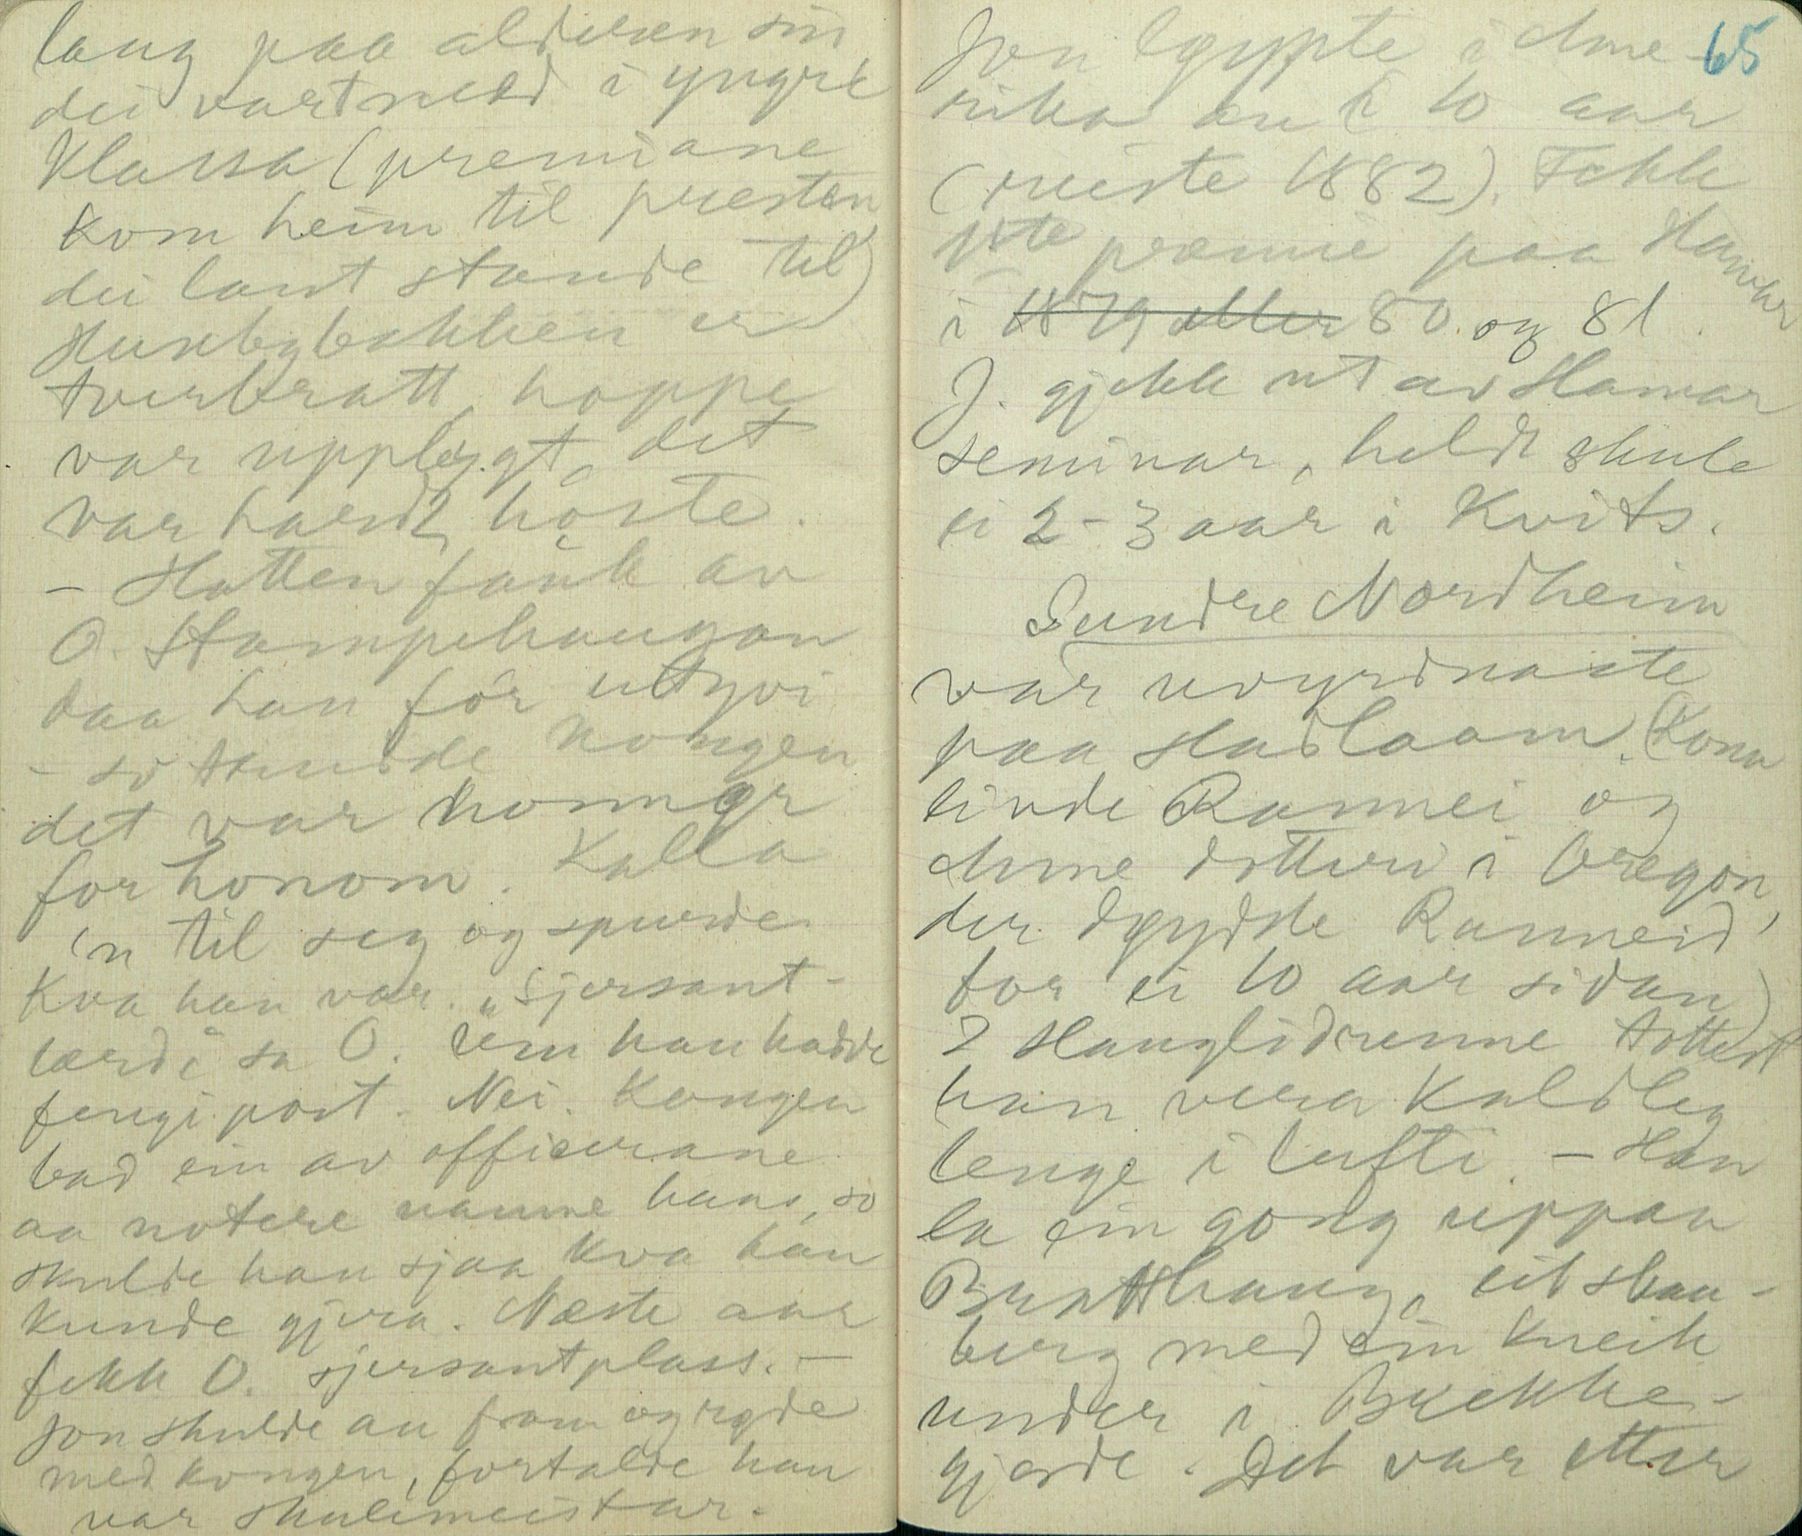 lang paa alderen sin
dei vart med i yngre
klassa (premiane
kom heim til presten
dei laut stande til)
Husebybakken er
tverbratt, hoppe
var upplegt, det
var hardt, håste.
- Hatten fauk av
O. Stampehaugan
daa han fór utyvi
- so trudde kongen
det var honnør
for honom. Kalla
'n til seg og spurde
kva han var. „Sjersant-
lærd" sa O. um han hadde
fengi post. Nei. Kongen
bad ein av officerane
aa notere namne hans, so
skulde han sjaa kva han
kunde gjera. Næste aar
fekk O. sjersantplass. -
Jon skulde au fram og røde
med kongen, fortalde han
var skulemeistar.
65
Jon Egypte i Ame-
rika au i 10 aar
(reiste 1882). Fekk
1ste premie paa Hamar
i 1879 eller 80. og 81.
J. gjekk ut av Hamar
seminar, heldt skule
ei 2-3 aar i Kvits.
Sundre Nordheim
var uvyrdnaste
paa Hadlaom. (Kona
livde Rannei og
Anne dotteri i Oregon,
der døydde Ranneid
for ei 10 aar sidan)
I Hauglidrenne tottest
han vera kaldleg
lenge i lufti. - Han
la ein gong uppaa
Bratthaug, eit skaa-
berg med ein kneik
under i Brekke-
gjerde. Det var etter